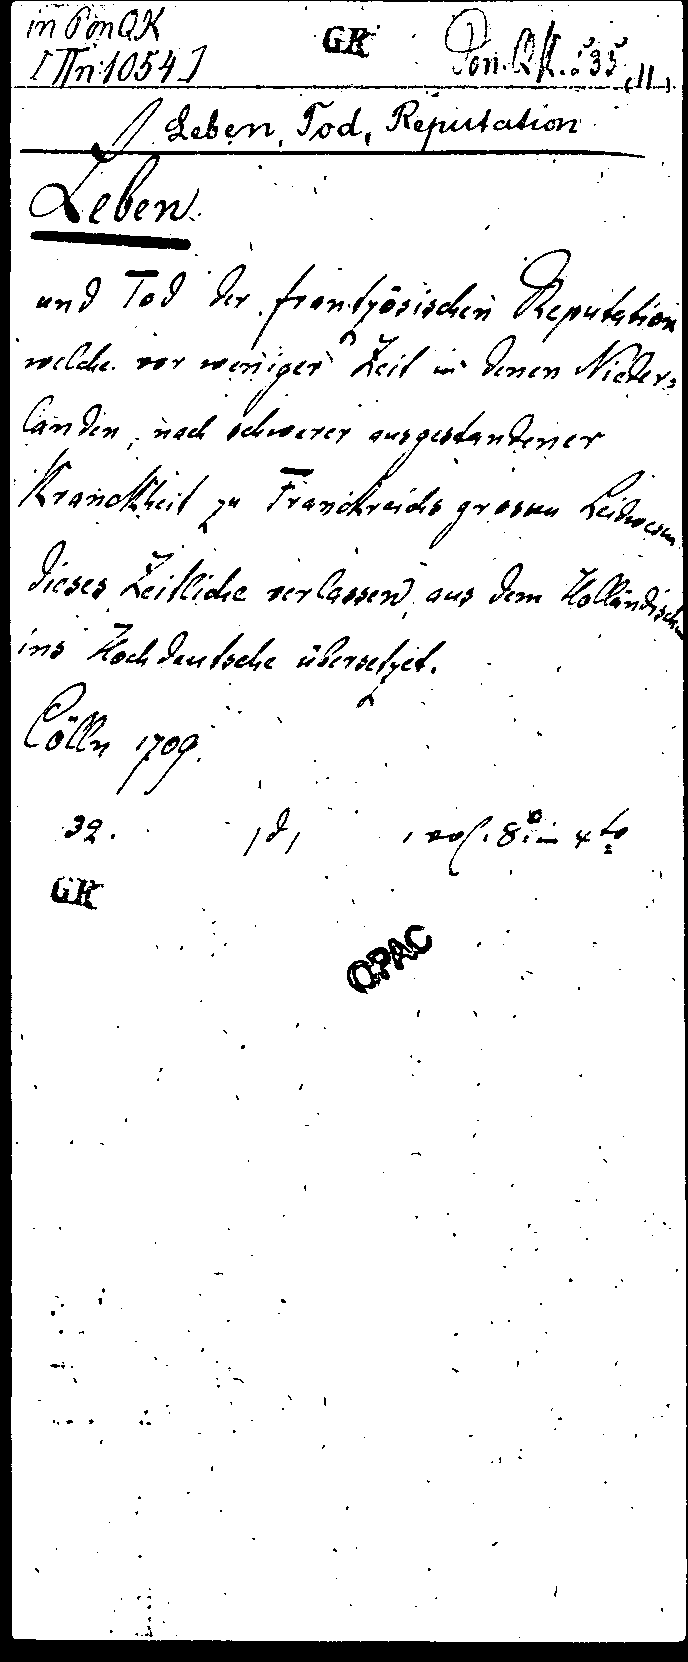 in Pon QK GK Pon. QK.: 35, (11)
[IIn 1054]
Leben, Tod, Reputation
Leben
und Tod der frantzösischen Reputation
welche vor weniger Zeit in denen Nieder=
landen, nach schwerer ausgestandener
Kranckheit zu Franckreichs grossen Leidwesen
dieses Zeitliche verlassen, aus dem Holländischen
ins Hochdeutsche übersetzet.
Cölln 1709.
32. , 8° in 4to
GK
OPAC